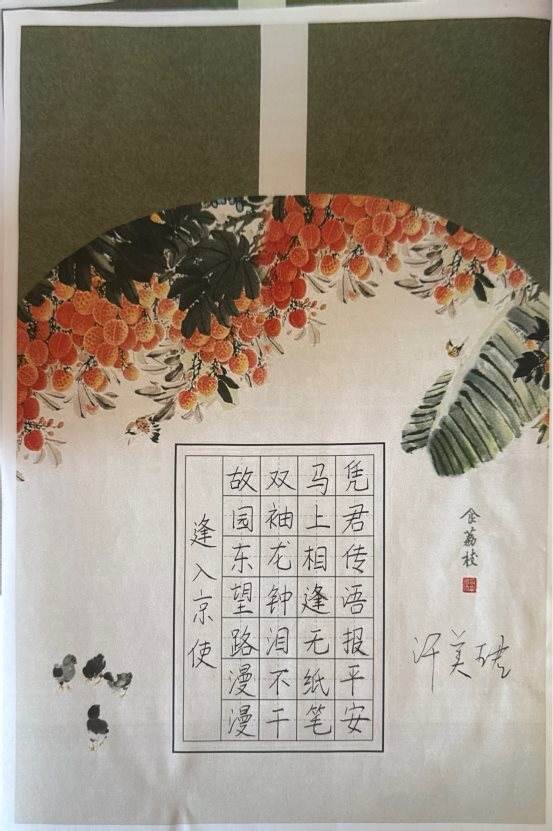 逢入京使
故园东望路漫漫
双袖龙钟泪不干
马上相逢无纸笔
凭君传语报平安
食荔枝